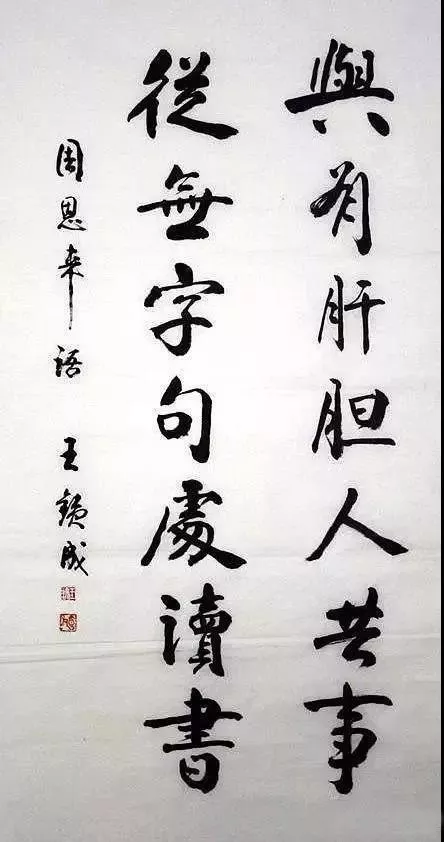 與有肝胆人共事
從無字句處讀書
周恩来语 王